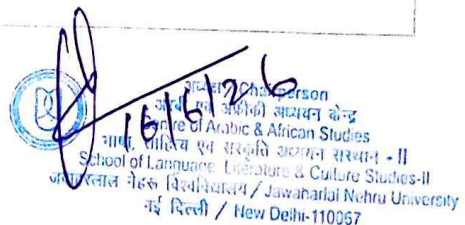 अध्यक्ष / Chairperson
अरबी एवं अफ्रीकी अध्ययन केन्द्र
Centre of Arabic & African Studies
भाषा, साहित्य एवं संस्कृति अध्ययन संस्थान - II
School of Language, Literature & Culture Studies-II
जवाहरलाल नेहरू विश्वविद्यालय / Jawaharlal Nehru University
नई दिल्ली / New Delhi-110067
16/6/26